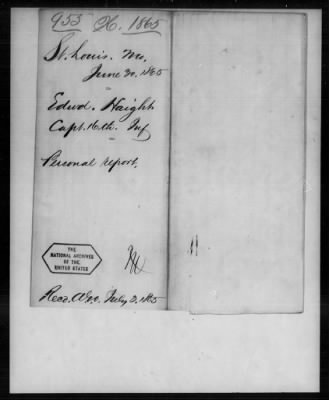 953 H. 1865
St. Louis. Mo.
June 30. 1865
Edwd. Haight
Capt. 16th. Inf
Personal report.
THE
NATIONAL ARCHIVES
OF THE
UNITED STATES
Recd. A.G.O. July 3. 1865